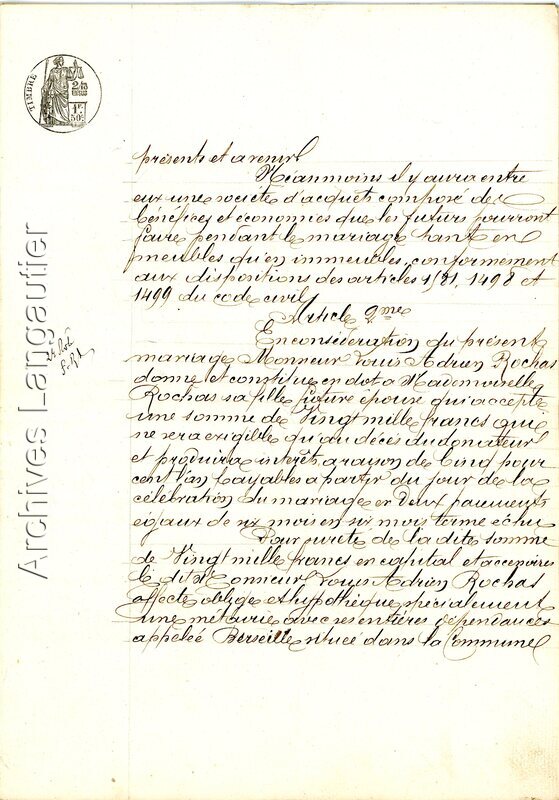 TIMBRE
présents et avenir
Néanmoins il y aura entre
eux une société d'acquets composé des
bénéfices et économies que les futurs pourront
faire pendant le mariage tant en
meubles qu'en immeubles, conformément
aux dispositions des articles 1581, 1498 et
1499 du code civil
Article 2me
En considération du présent
mariage Monsieur Louis Adrien Rochas
donne et constitue en dot a Mademoiselle
Rochas sa fille future épouse qui accepte
une somme de Vingt mille francs qui
ne sera exigible qu'au décès du donateur
et produira intérêts a raison de Cinq pour
cent l'an payables a partir du jour de la
célébration du mariage en deux paiements
égaux de six mois en six mois terme échu
Pour sureté de la dite somme
de Vingt mille francs en capital et accessoires
le dit Monsieur Louis Adrien Rochas
affecte oblige et hypothèque spécialement
une métairie avec ses entières dépendances
appelée Berseille située dans la Commune
Archives Langautier